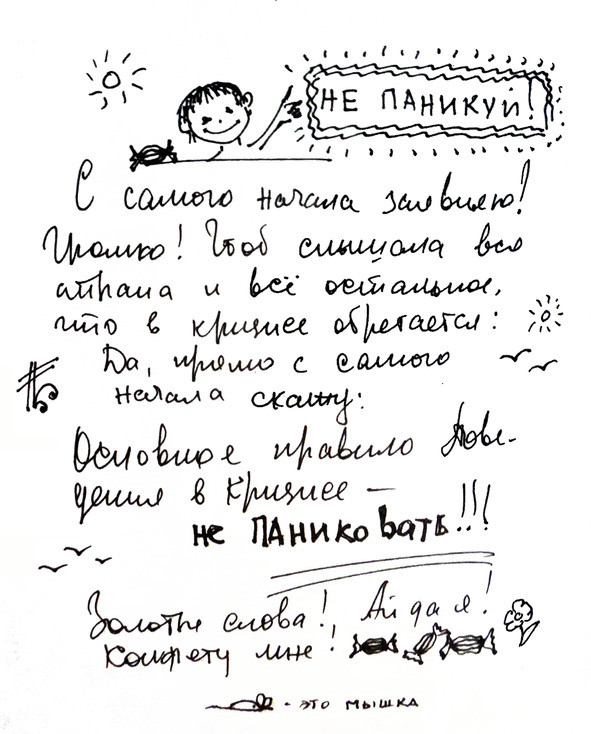 НЕ ПАНИКУЙ!
С самого начала заявляю!
Громко! Чтоб слышала вся
страна и всё остальное,
что в кризисе обретается:
Да, прямо с самого
начала скажу:
Основное правило пове-
дения в кризисе —
НЕ ПАНИКОВАТЬ!!!
Золотые слова! Ай да я!
Конфету мне!
- ЭТО МЫШКА